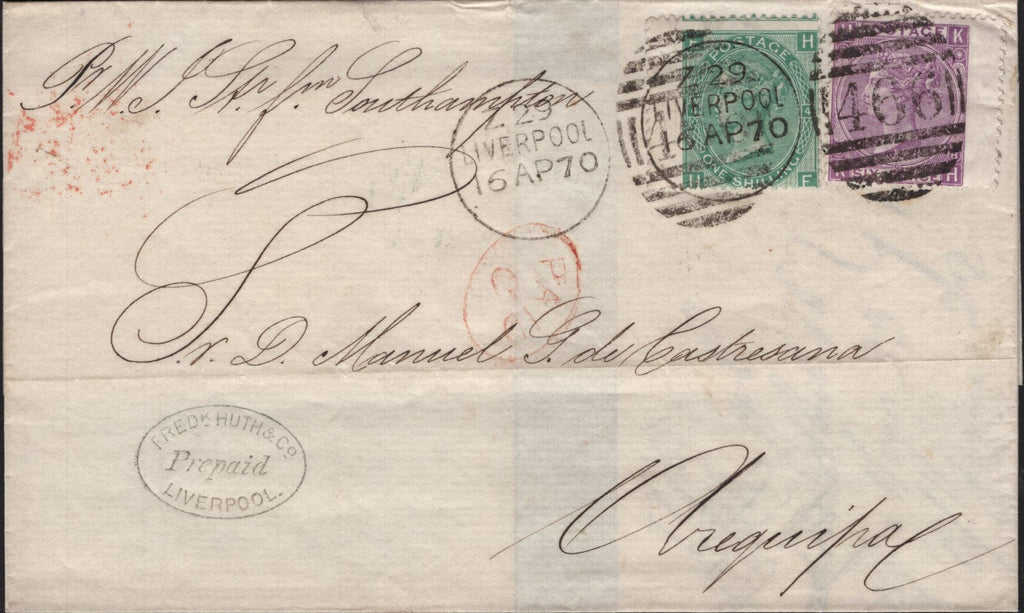 Pr W. I. Str fm Southampton
Z 29
LIVERPOOL
16 AP 70
H H
POSTAGE
ONE SHILLING
H E
Z 29
LIVERPOOL
16 AP 70
K
POSTAGE
466
SIX
K H
PA
Sr. D. Manuel G. de Castresana
FREDK HUTH & Co
Prepaid
LIVERPOOL.
Arequipa